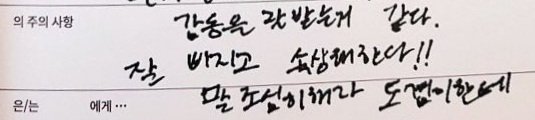 의 주의 사항 감동을 잘 받는게 같다.
잘 삐지고 속상해한다!!
은/는 에게… 말 조심히해라 도겸이한테